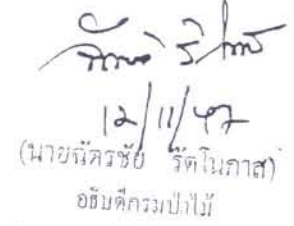 ๑๒/๑๑/๔๒
(นายฉัตรชัย รัตโนภาส)
อธิบดีกรมป่าไม้